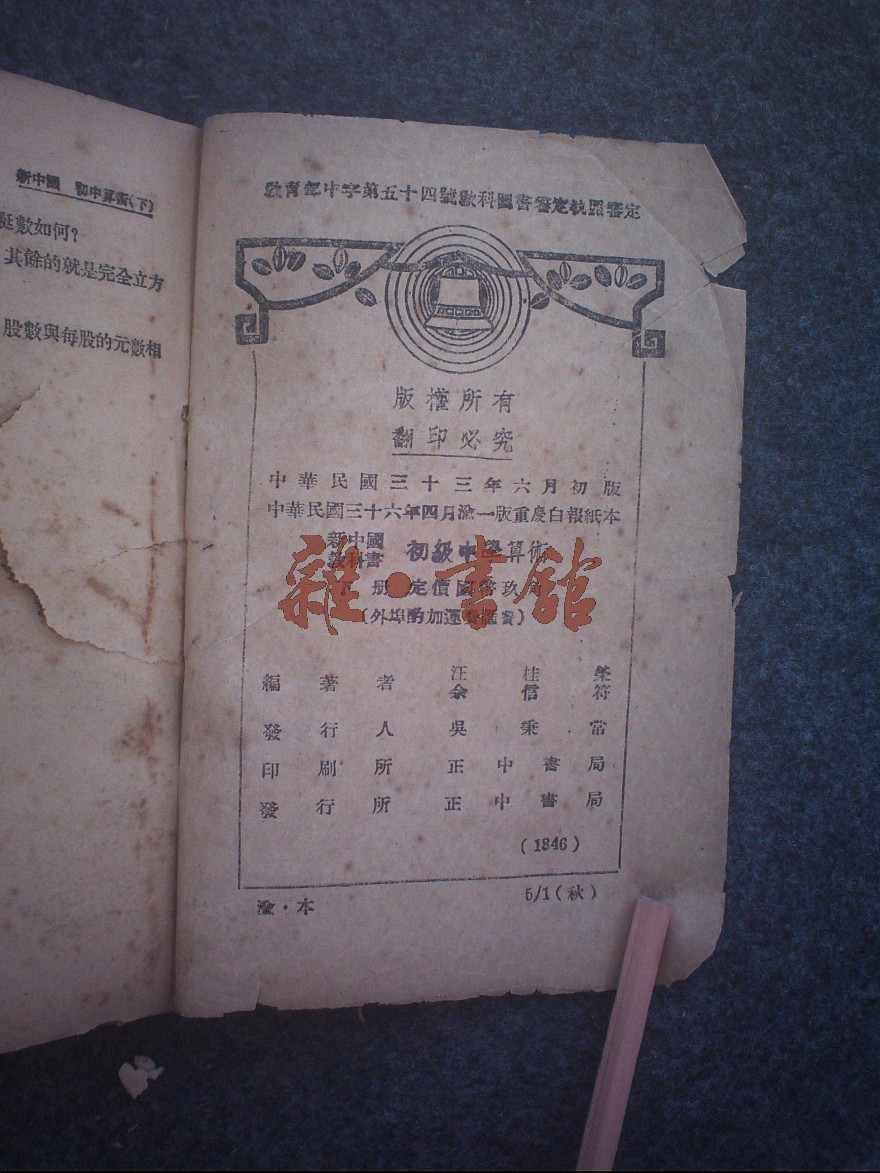 新中國 初中算術(下)
數如何?
其餘的就是完全立方
股數與每股的元數相
教育部中字第五十四號教科圖書審定執照審定
版權所有
翻印必究
中華民國三十三年六月初版
中華民國三十六年四月渝一版重慶白報紙本
新中國
教科書 初級中學算術
下册 定價國幣玖角
(外埠酌加運費匯費)
汪桂榮
編著者
余信符
發行人 吳秉常
印刷所 正中書局
發行所 正中書局
(1846)
渝·本 5/1(秋)
雜·書館